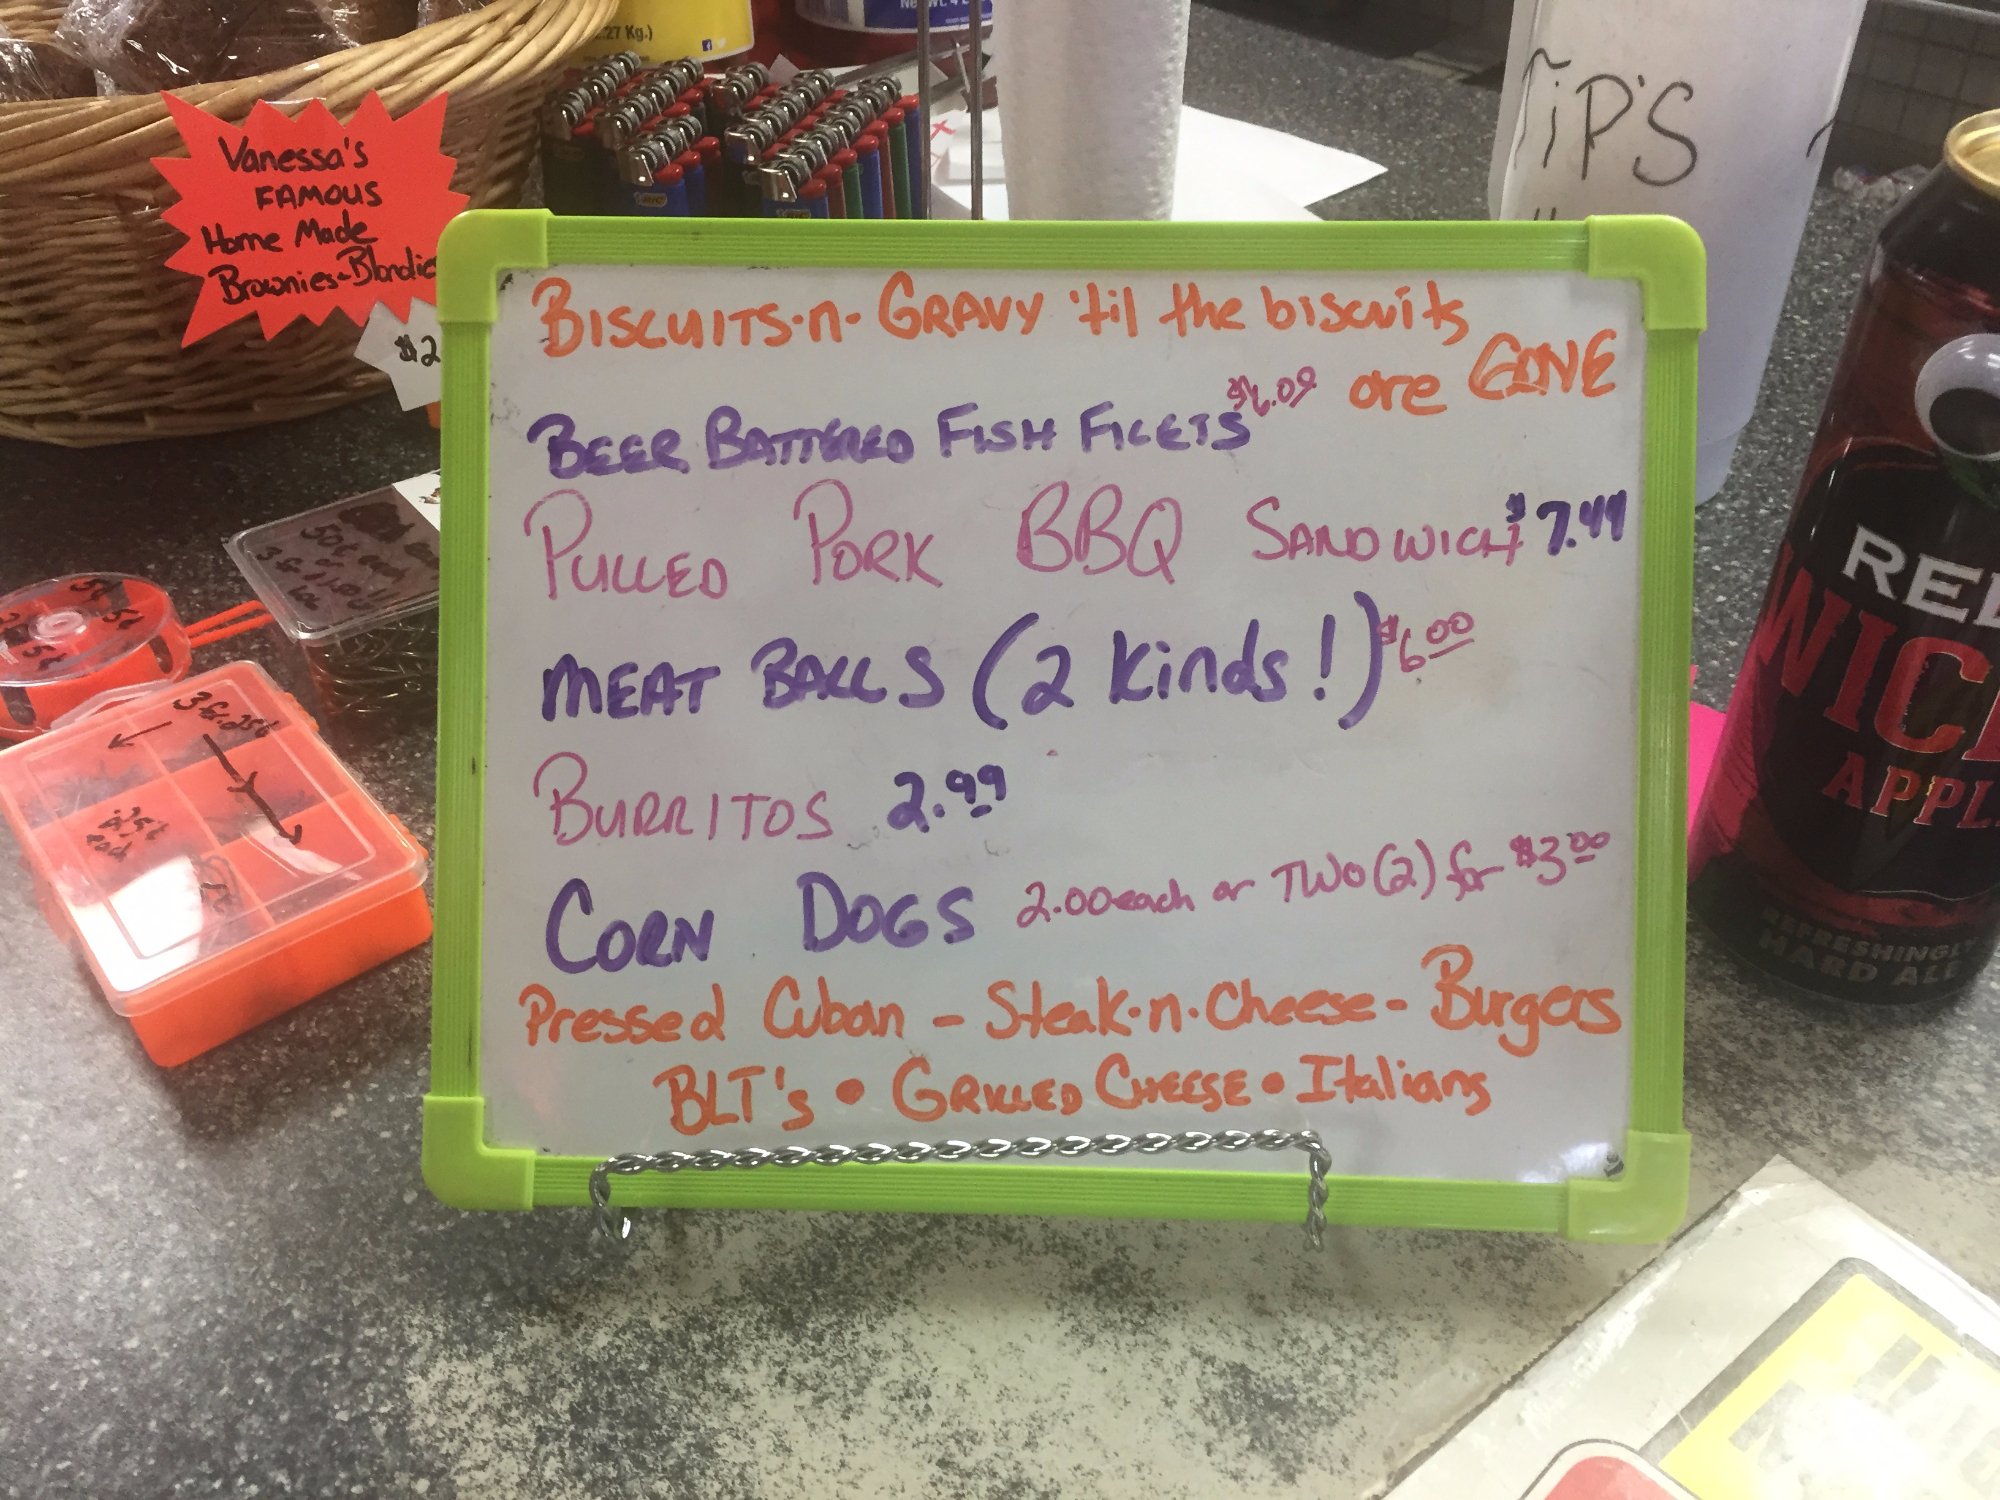 .27 Kg.)
Vanessa's
FAMOUS
Home Made
Brownies-Blondie
$2
TiP'S
BISCUITS-n-GRAVY 'til the biscuits
are GONE
BEER BATTERED FISH FILETS $6.09
PULLED PORK BBQ SANDWICH $7.49
MEAT BALLS (2 Kinds!) $6.00
BURRITOS 2.99
CORN DOGS 2.00 each or TWO (2) for $3.00
Pressed Cuban - Steak-n-Cheese - Burgers
BLT's • GRILLED CHEESE • Italians
50¢ each
3 for .25¢
.25¢
each
RED
WIC
APPL
REFRESHINGL
HARD ALE